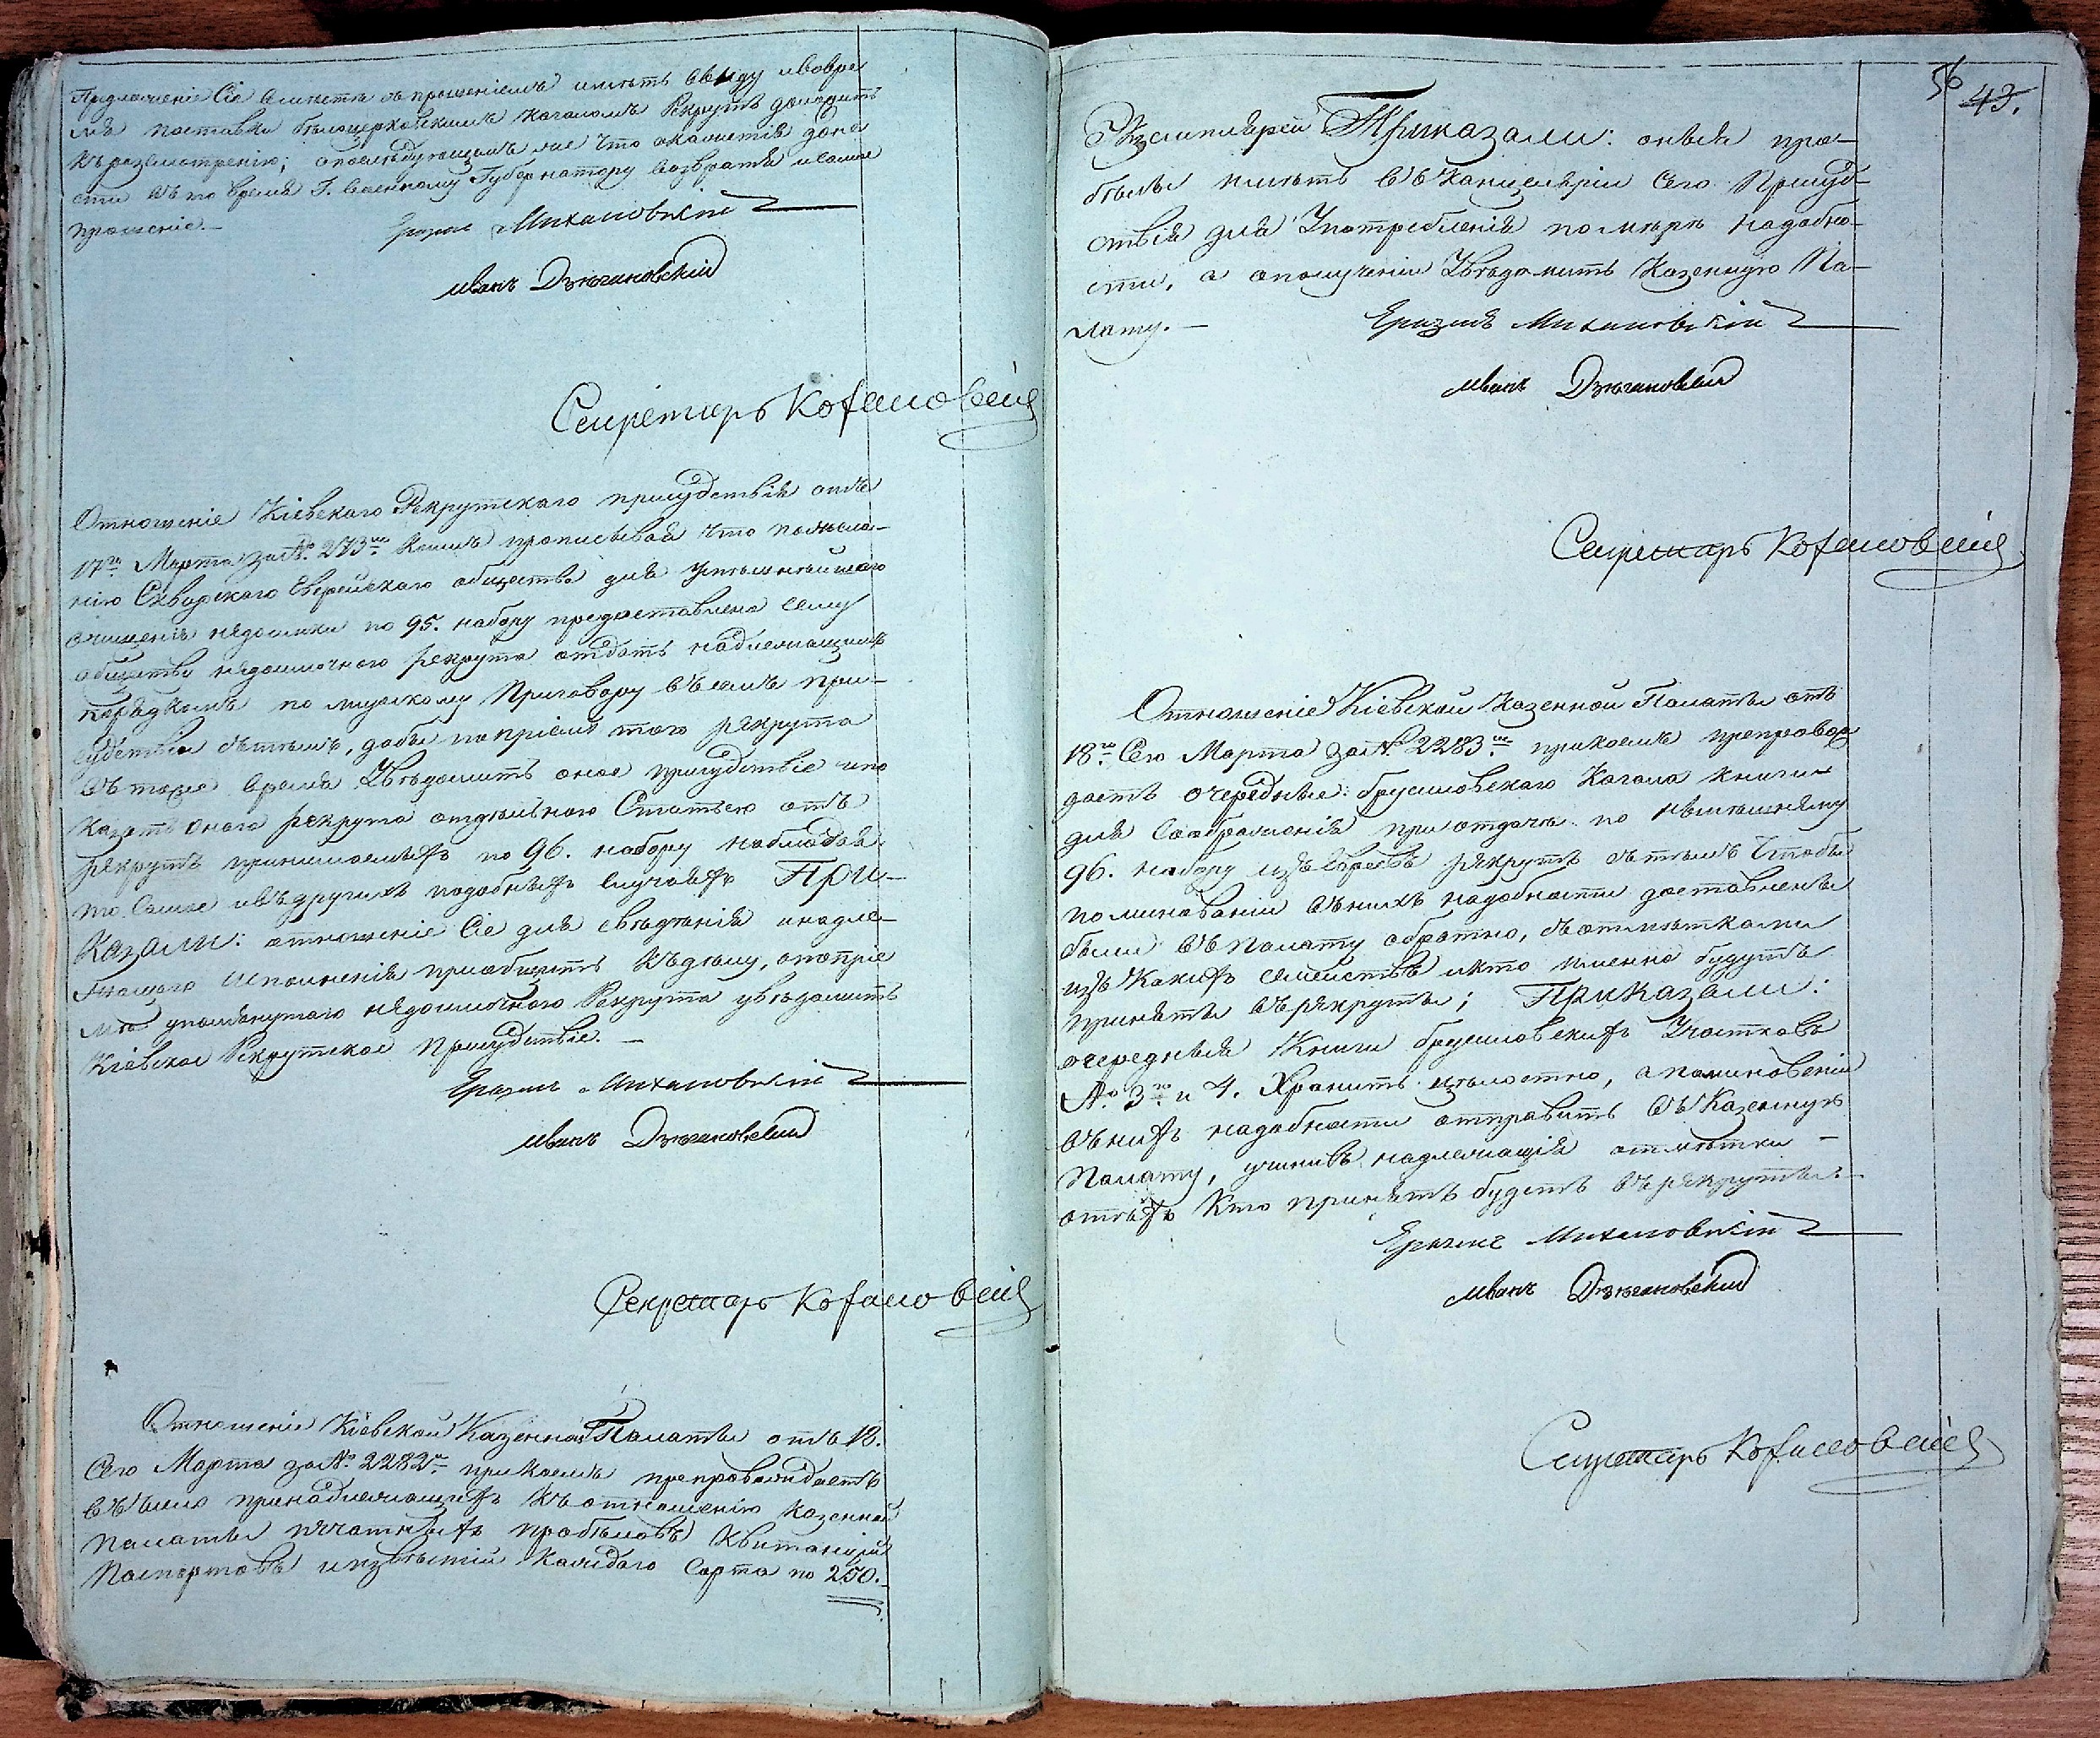 Предложеніе Сіе вместе съ прошеніемъ иметь ввиду и вовре
мя поставки белоцерковскимъ кагаломъ Рекрутъ доложить
къ разсмотренію; опоследующемъ же что окажется доне
сти въ то время Г. Военному Губернатору возвратя и самое
прошеніе.—
Еразмъ Михаловскій
Иванъ Дзюгановскій
Секретарь
Отношеніе Кіевскаго Рекрутскаго присудствія отъ
17го Марта за № 273мъ коимъ прописывая что пожела-
нію Сквирскаго Еврейскаго общества для успешнейшаго
очищенія недоимки по 95. набору предоставлено сему
обществу недоимочнаго рекрута отдать надлежащимъ
порядкомъ по мирскому Приговору въ семъ при-
судствіи съ темъ, дабы по пріеме того рекрута
въ тоже время Уведомить оное присудствіе и по
казать онаго рекрута отдельною Статьею отъ
рекрутъ принимаемыхъ по 96. набору наблюдая
то самое и въ другихъ подобныхъ случаяхъ При-
казали: отношеніе Сіе для сведенія и надле-
жащаго исполненія пріобщить къ делу, о пріе
ме упомянутаго недоимочнаго Рекрута уведомить
Кіевское Рекрутское Присудствіе.—
Еразмъ Михаловскій
Иванъ Дзюгановскій
Секретарь
Отношеніе Кіевской Казенной Палаты отъ 18.
Сего Марта за № 2282мъ при коемъ препровождаетъ
къ отношенію Казенной
Палаты печатныхъ пробеловъ Квитанцій
Паспортовъ и извѣстій каждаго Сорта по 250.
56 43.
Экземплярей Приказали: оныя про-
белы иметь въ Канцеляріи Сего Присуд-
ствія для Употребленія по мере надобно-
сти, а о полученіи Уведомить Казенную Па-
лату.—
Еразмъ Михаловскій
Иванъ Дзюгановскій
Секретарь
Отношеніе Кіевской Казенной Палаты отъ
18го Сего Марта за № 2283мъ при коемъ препровож
даетъ очередные Брусиловскаго Кагала книги
для Соображенія при отдаче по нынешнему
96. набору изъ Евреевъ рекрутъ съ темъ Чтобы
по минованіи въ нихъ надобности доставлены
были въ Палату обратно, съ отметками
изъ Какихъ семействъ и кто именно будутъ
приняты въ рекруты; Приказали:
очередныя Книги Брусиловскихъ Участковъ
№ 3го и 4. Хранить целостно, а по минованіи
въ нихъ надобности отправить въ Казенную
Палату, учинивъ надлежащія отметки —
о техъ Кто принятъ будетъ въ рекруты.—
Еразмъ Михаловскій
Иванъ Дзюгановскій
Секретарь